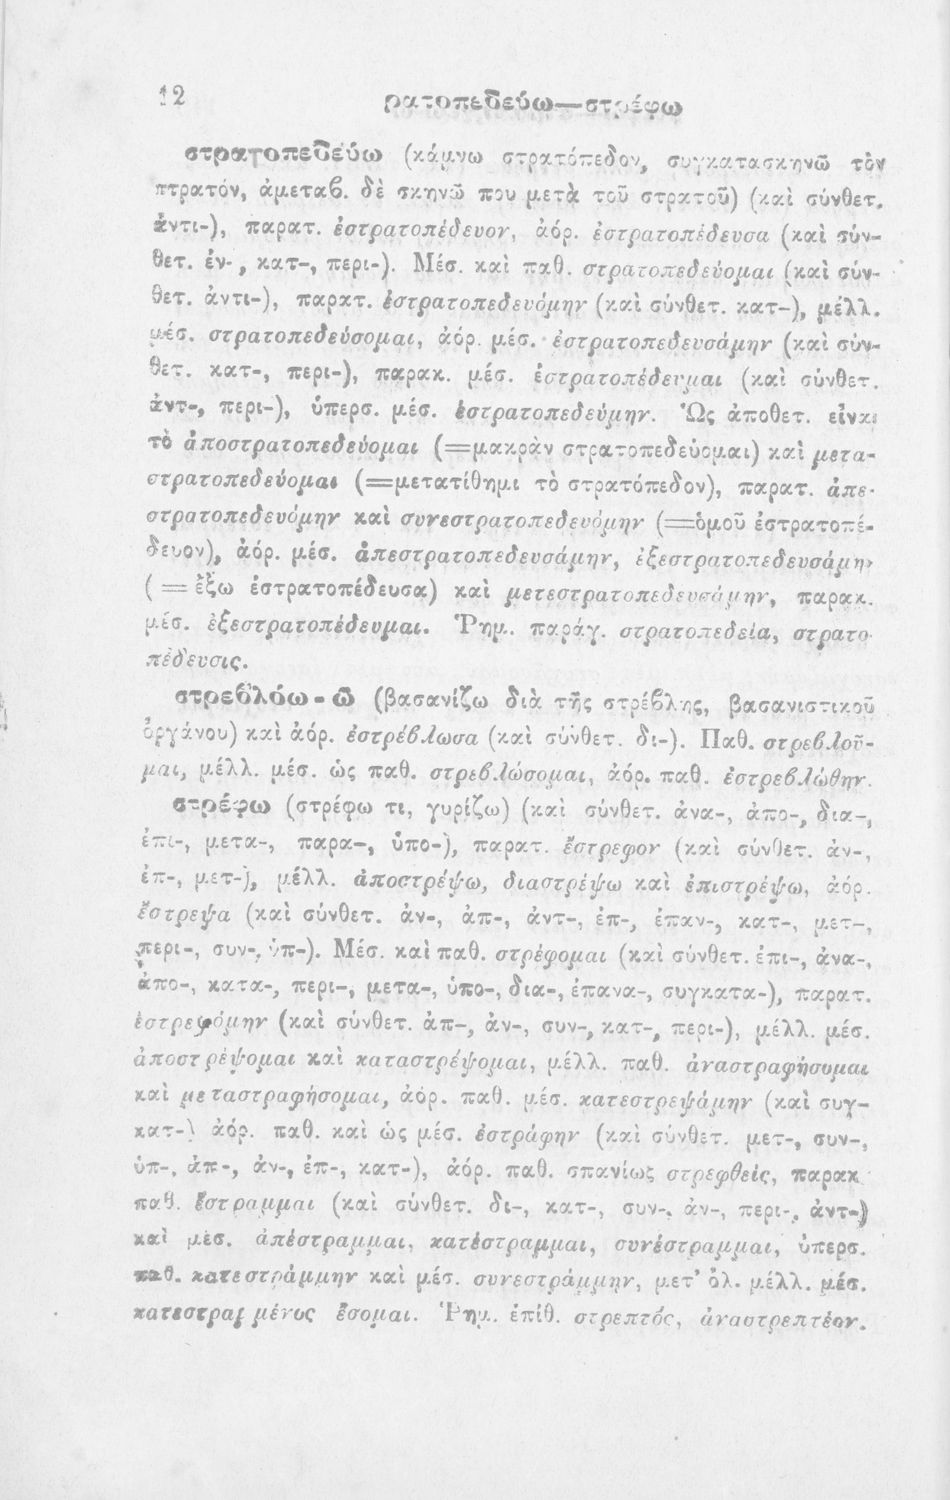 12 ρατοπεδεύω—στρέφω
στρατοπεδεύω (κάμνω στρατόπεδον, συγκατασκηνῶ τὸν
στρατόν, ἀμεταβ. δὲ σκηνῶ που μετὰ τοῦ στρατοῦ) (καὶ σύνθετ.
ἀντι-), παρατ. ἐστρατοπέδευον, ἀόρ. ἐστρατοπέδευσα (καὶ σύν-
θετ. ἐν-, κατ-, περι-). Μέσ. καὶ παθ. στρατοπεδεύομαι (καὶ σύν-
θετ. ἀντι-), παρατ. ἐστρατοπεδευόμην (καὶ σύνθετ. κατ-), μέλλ.
μέσ. στρατοπεδεύσομαι, ἀόρ. μέσ. ἐστρατοπεδευσάμην (καὶ σύν-
θετ. κατ-, περι-), παρακ. μέσ. ἐστρατοπέδευμαι (καὶ σύνθετ.
ἀντ-, περι-), ὑπερσ. μέσ. ἐστρατοπεδεύμην. Ὡς ἀποθετ. εἶναι
τὸ ἀποστρατοπεδεύομαι (=μακρὰν στρατοπεδεύομαι) καὶ μετα-
στρατοπεδεύομαι (=μετατίθημι τὸ στρατόπεδον), παρατ. ἀπε-
στρατοπεδευόμην καὶ συνεστρατοπεδευόμην (=ὁμοῦ ἐστρατοπέ-
δευον), ἀόρ. μέσ. ἀπεστρατοπεδευσάμην, ἐξεστρατοπεδευσάμην
(=ἔξω ἐστρατοπέδευσα) καὶ μετεστρατοπεδευσάμην, παρακ.
μέσ. ἐξεστρατοπέδευμαι. Ῥημ. παράγ. στρατοπεδεία, στρατο
πέδευσις.
στρεβλόω-ῶ (βασανίζω διὰ τῆς στρέβλης, βασανιστικοῦ
ὀργάνου) καὶ ἀόρ. ἐστρέβλωσα (καὶ σύνθετ. δι-). Παθ. στρεβλοῦ-
μαι, μέλλ. μέσ. ὡς παθ. στρεβλώσομαι, ἀόρ. παθ. ἐστρεβλώθην.
στρέφω (στρέφω τι, γυρίζω) (καὶ σύνθετ. ἀνα-, ἀπο-, δια-,
ἐπι-, μετα-, παρα-, ὑπο-), παρατ. ἔστρεφον (καὶ σύνθετ. ἀν-,
ἐπ-, μετ-), μέλλ. ἀποστρέψω, διαστρέψω καὶ ἐπιστρέψω, ἀόρ.
ἔστρεψα (καὶ σύνθετ. ἀν-, ἀπ-, ἀντ-, ἐπ-, ἐπαν-, κατ-, μετ-,
περι-, συν-, ὑπ-). Μέσ. καὶ παθ. στρέφομαι (καὶ σύνθετ. ἐπι-, ἀνα-,
ἀπο-, κατα-, περι-, μετα-, ὑπο-, δια-, ἐπανα-, συγκατα-), παρατ.
ἐστρεφόμην (καὶ σύνθετ. ἀπ-, ἀν-, συν-, κατ-, περι-), μέλλ. μέσ.
ἀποστρέψομαι καὶ καταστρέψομαι, μέλλ. παθ. ἀναστραφήσομαι
καὶ μεταστραφήσομαι, ἀόρ. παθ. μέσ. κατεστρεψάμην (καὶ συγ-
κατ-) ἀόρ. παθ. καὶ ὡς μέσ. ἐστράφην (καὶ σύνθετ. μετ-, συν-,
ὑπ-, ἀπ-, ἀν-, ἐπ-, κατ-), ἀόρ. παθ. σπανίως στρεφθείς, παρακ
παθ. ἔστραμμαι (καὶ σύνθετ. δι-, κατ-, συν-, ἀν-, περι-, ἀντ-)
καὶ μέσ. ἀπέστραμμαι, κατέστραμμαι, συνέστραμμαι, ὑπερσ.
παθ. κατεστράμμην καὶ μέσ. συνεστράμμην, μετ' ὀλ. μέλλ. μέσ.
κατεστραμμένος ἔσομαι. Ῥημ. ἐπίθ. στρεπτός, ἀναστρεπτέον.